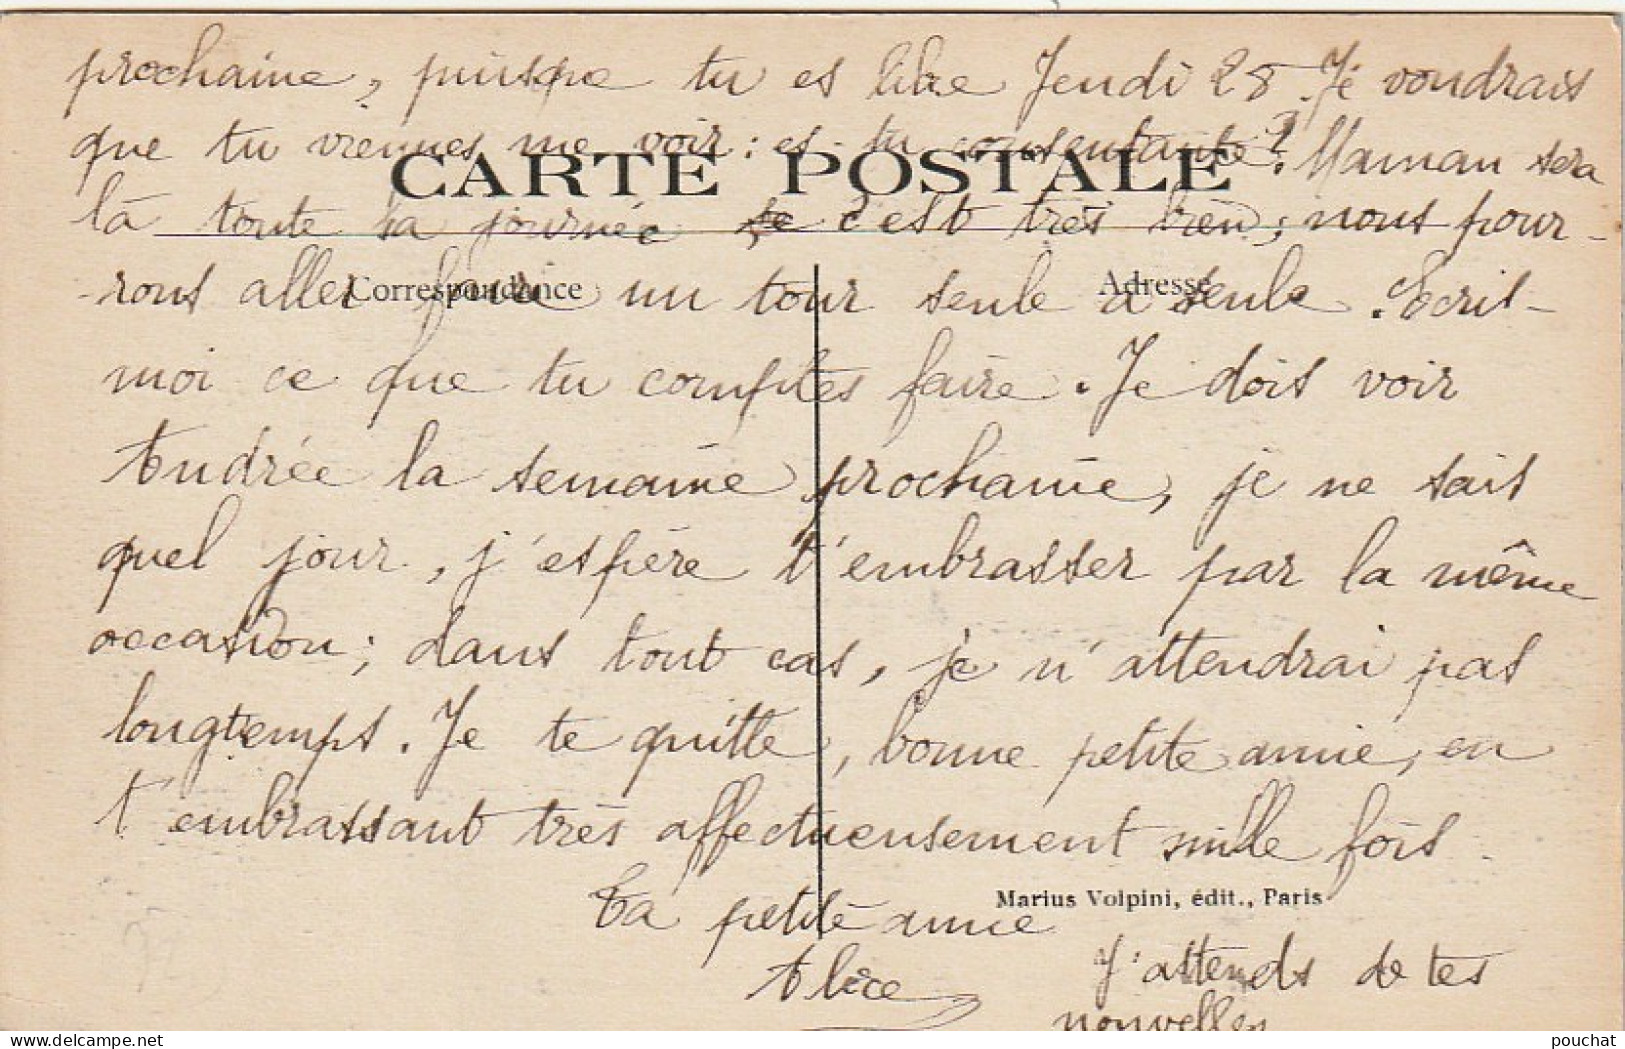 prochaine, puisque tu es libre Jeudi 28. Je voudrais
que tu viennes me voir : es-tu consentante ? Maman sera
CARTE POSTALE
là toute la journée c'est très bien; nous pour-
-rons aller faire un tour seule à seule. Ecris-
Correspondance
Adresse
moi ce que tu comptes faire. Je dois voir
Andrée la semaine prochaine, je ne sais
quel jour, j'espère t'embrasser par la même
occasion; dans tout cas, je n'attendrai pas
longtemps. Je te quitte, bonne petite amie, en
t'embrassant très affectueusement mille fois.
Marius Volpini, édit., Paris
Ta petite amie
Alice
J'attends de tes
nouvelles
delcampe.net
pouchat